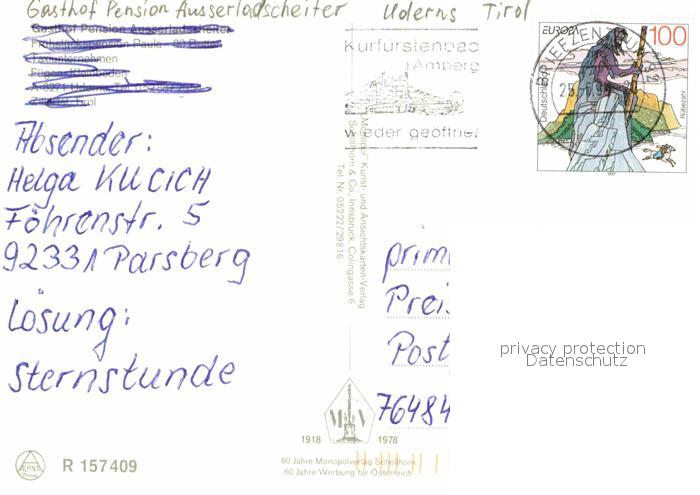 Gasthof Pension Ausserladscheiter Uderns Tirol
Gasthof Pension Ausserladscheiter
Absender:
Helga KUCICH
Föhrenstr. 5
92331 Parsberg
Lösung:
Sternstunde
R 157409
Kurfürstenbad
Amberg
wieder geöffnet
"Monopol" Kunst- und Ansichtskarten-Verlag
Schöllhorn & Co., Innsbruck, Colingasse 6
Tel. Nr. 05222/29816
1918 1978
60 Jahre Monopolverlag Schöllhorn
60 Jahre Werbung für Österreich
EUROPA
100
Deutschland
Rübezahl
1997
BRIEFZEN
prim
Prei
Post
76484
privacy protection
Datenschutz